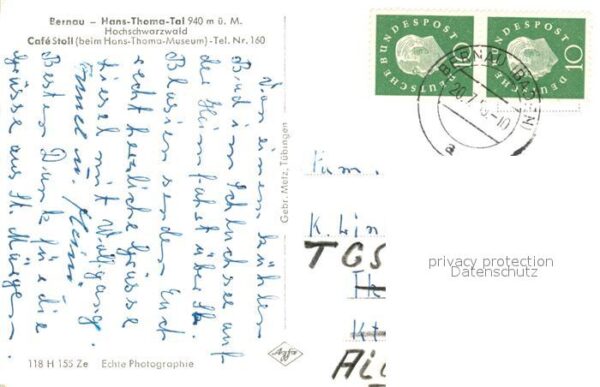 Bernau – Hans-Thoma-Tal 940 m ü. M.
Hochschwarzwald
Café Stoll (beim Hans-Thoma-Museum) - Tel. Nr. 160
Von einem kühlen
Bad im Schluchsee auf
der Heimfahrt über St.
Blasien senden Euch
recht herzliche Grüsse
Liesel mit Wolfgang.
Besten Dank für die
Grüsse aus St. Märgen.
Gebr. Metz, Tübingen
118 H 155 Ze Echte Photographie
DEUTSCHE BUNDESPOST
10
DEUTSCHE BUNDESPOST
10
BERNAU (BADEN)
a
Fam.
K. Lin
TGS
privacy protection
Datenschutz